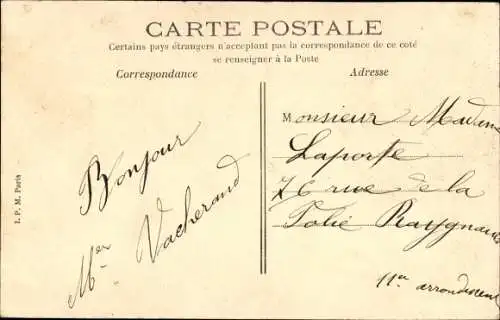 CARTE POSTALE
Certains pays étrangers n'acceptant pas la correspondance de ce coté
se renseigner à la Poste
Correspondance
Adresse
Bonjour
Mer Vacherand
Monsieur Madame
Laporte
76 rue de la
Folie Raygnaud
11e arrondissement
I. P. M. Paris